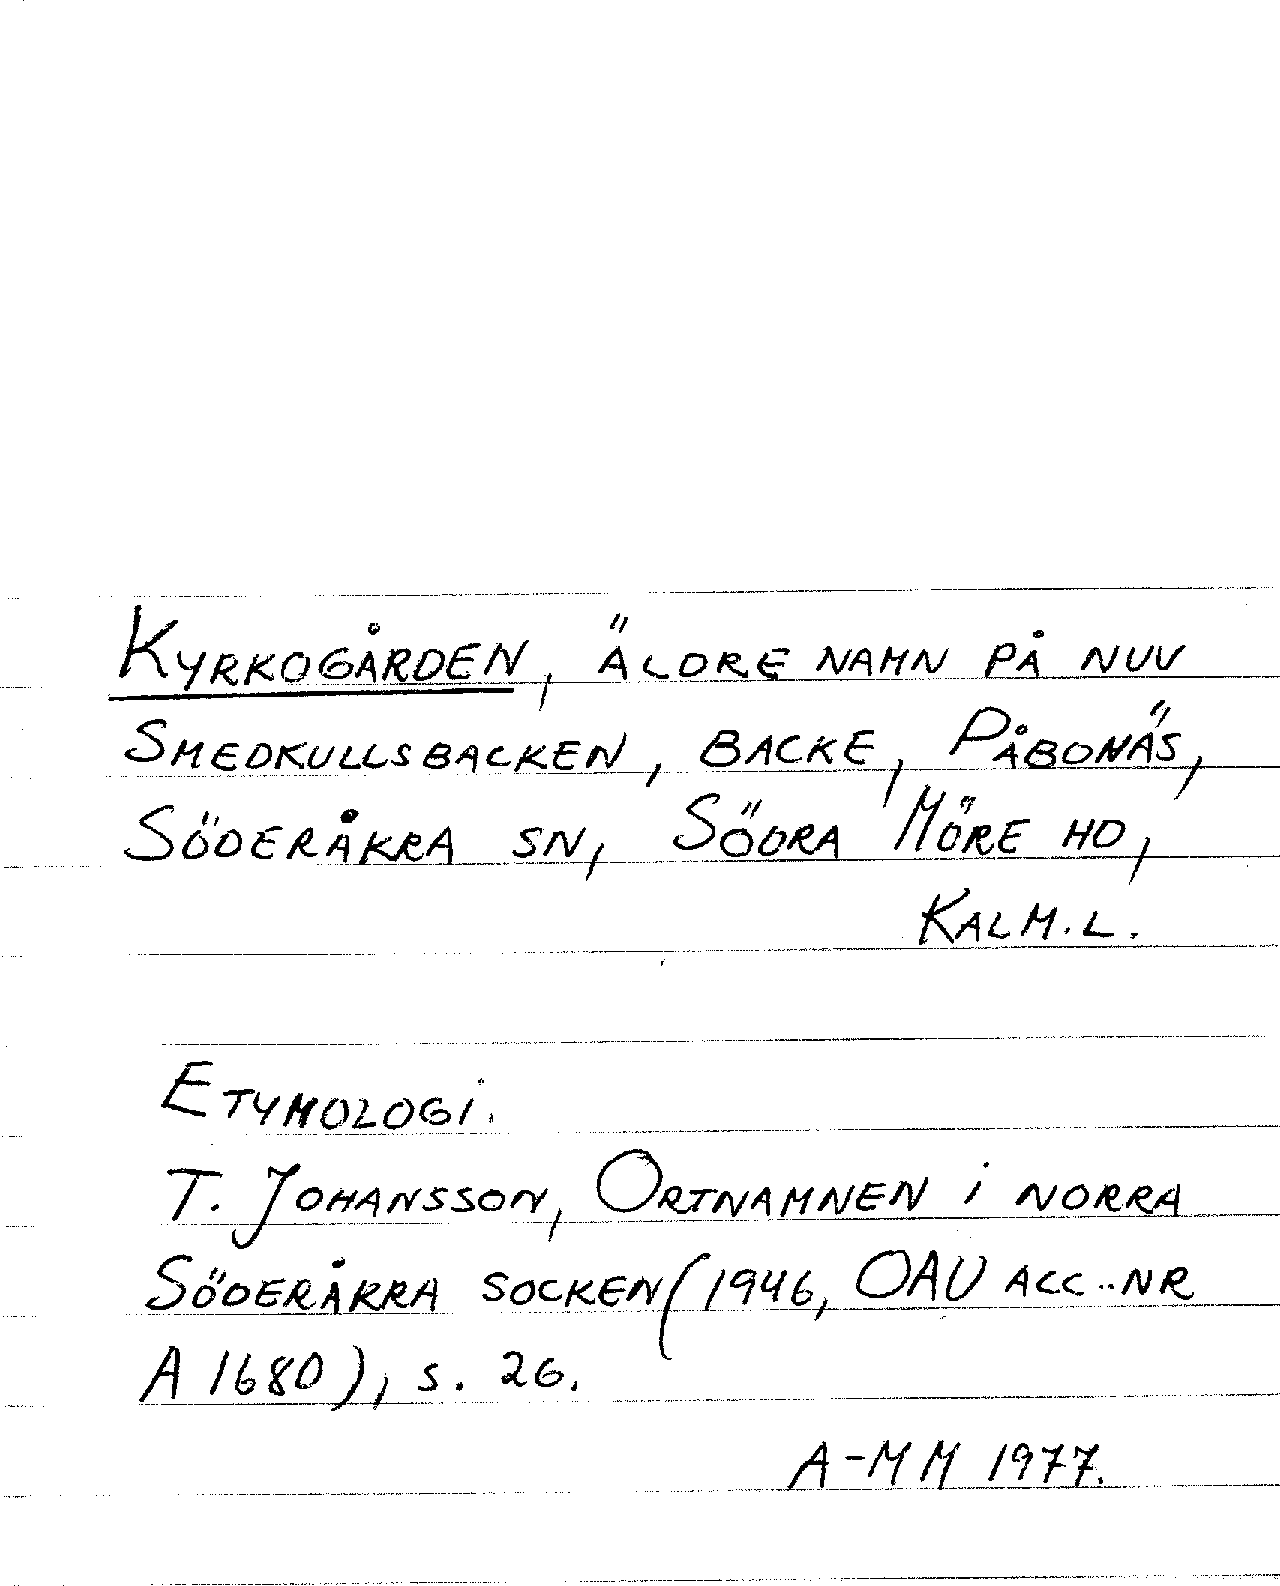 Kyrkogården, äldre namn på nuv
Smedkullsbacken, backe, Påbonäs,
Söderåkra sn, Södra Möre hd,
Kalm.l.
Etymologi.
T. Johansson, Ortnamnen i norra
Söderåkra socken (1946, OAU acc..nr
A 1680), s. 26.
A-MM 1977.